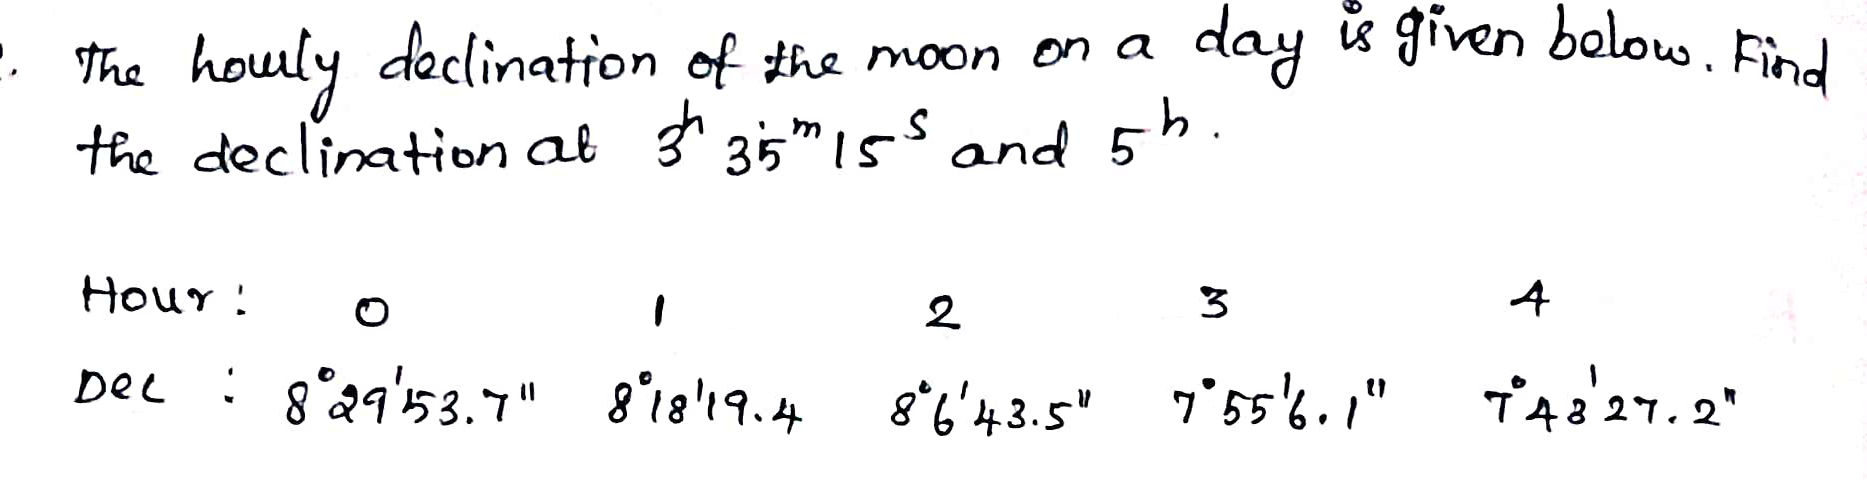 The hourly declination of the moon on a day is given below. Find
the declination at 3h 35m 15s and 5h.
Hour : 0 1 2 3 4
Dec : 8°29'53.7" 8°18'19.4 8°6'43.5" 7°55'6.1" 7°43'27.2"